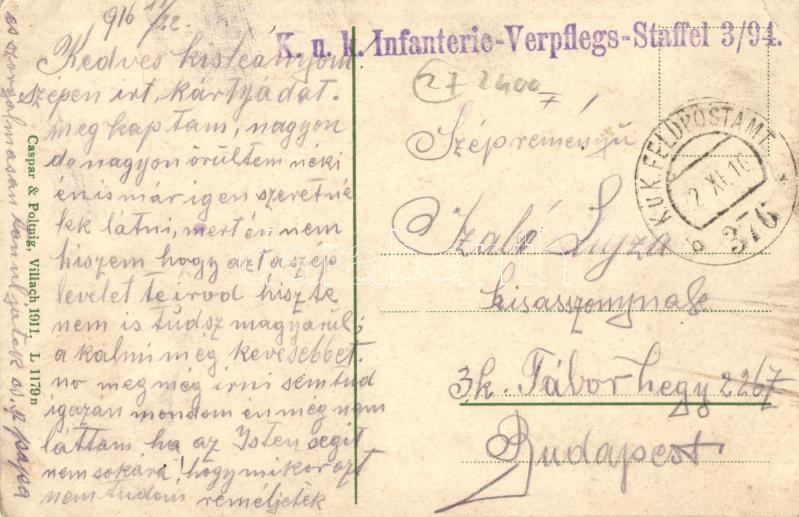 916 11/22.
K. u. k. Infanterie-Verpflegs-Staffel 3/94.
Kedves kisleányom
Szépen irt, kártyádat.
meg kaptam, nagyon
de nagyon örültem néki
én is már igen szeretné
lek látni, mert én nem
hiszem hogy azt a szép
levelet te irod hisz te
nem is tudsz magyarúl,
a kálmi még kevesebbet.
no meg még irni sem tud
igazán mondom én még nem
láttam ha az Isten segit
nem sokára! hogy mikor azt
nem tudom reméljetek
és szorgalmasan tanuljatok cs. p papa
Caspar & Polmig, Villach 1911. L 1179n
27 2400
Szépreményü
Szaló Lujza
kisasszonynak
3k. Táborhegy 2267
Budapest
K.U.K. FELDPOSTAMT
2. XI. 16
b 376